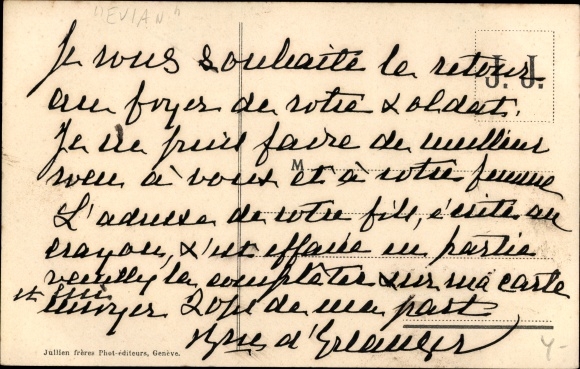 "EVIAN"
Je vous souhaite le retour
J. J.
au foyer de votre soldat.
Je ne puis faire de meilleur
M
voeu à vous et à votre femme
L'adresse de votre fils, écrite au
crayon, s'est effacée en partie
veuillez la compléter sur ma carte
et lui envoyer 20f de ma part
d'Erlanger
Jullien frères Phot-éditeurs, Genève.
4-